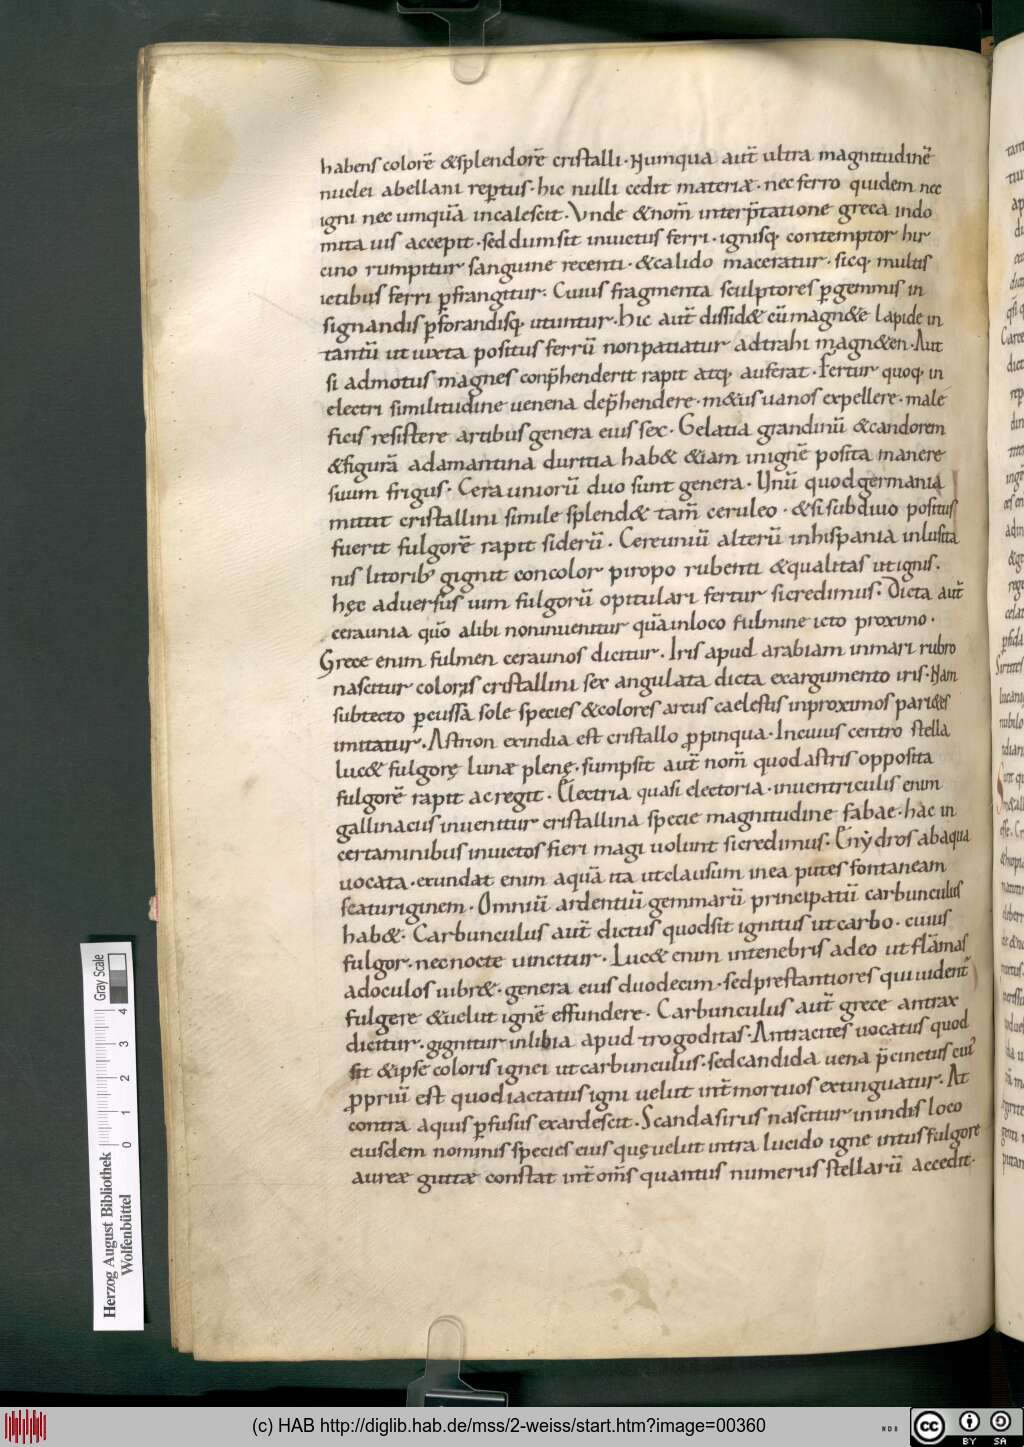 habens colorē &splendorē cristalli · Numqua aut̄ ultra magnitudinē
nuclei abellani rep̄tus · hic nulli cedit materiæ · nec ferro quidem nec
igni nec umquā incalescit · Unde &nom̄ interp̄tatione greca indo
mita uis accepit · sed dum sit inuictus ferri · ignisq; contemptor hir
cino rumpitur sanguine recenti · &calido maceratur · sicq; multis
ictibus ferri ꝑfrangitur · Cuius fragmenta sculptores ꝑgemmis in
signandis ꝑforandisq; utuntur · hic aut̄ dissid& cū magn&e lapide in
tantū ut iuxta positus ferrū non patiatur adtrahi magn&en · Aut
si admotus magnes conp̄henderit rapit atq; auferat · Fertur quoq; in
electri similitudine uenena dep̄hendere · m&us uanos expellere · male
ficis resistere artibus genera eius sex · Gelatia grandinū &candorem
&figurā adamantina duritia hab& &iam in ignē posita manere
suum frigus · Cerauniorū duo sunt genera · Unū quod germania
mittit cristallini simile splend& tam̄ ceruleo · &si subdiuo positus
fuerit fulgorē rapit siderū · Cereuniū alterū inhispania inlusita
nis litorib; gignit concolor piropo rubenti &qualitas ut ignis ·
hęc aduersus uim fulgorū opitulari fertur si credimus · Dicta aut̄
ceraunia quō alibi non inuenitur quā in loco fulmine icto proximo ·
Grece enim fulmen ceraunos dicitur · Iris apud arabiam in mari rubro
nascitur coloris cristallini sex angulata dicta ex argumento iris · Nam
subtecto ꝑcussa sole species &colores arcus caelestis in proximos pari&es
imitatur · Astrion exindia est cristallo ꝓpinqua · In cuius centro stella
luc& fulgorę lunæ plenę · sumpsit aut̄ nom̄ quod astris opposita
fulgorē rapit ac regit · Electria quasi electoria · in uentriculis enim
gallinacus inuenitur cristallina specie magnitudine fabae · hac in
certaminibus inuictos fieri magi uolunt si credimus · Enydros abaqua
uocata · exundat enim aquā ita ut clausum in ea putes fontaneam
scaturiginem · Omniū ardentiū gemmarū principatū carbunculus
hab& · Carbunculus aut̄ dictus quod sit ignitus ut carbo · cuius
fulgor · nec nocte uincitur · Luc& enim in tenebris adeo ut flāmas
ad oculos uibr& · genera eius duodecim · sed prestantiores qui uident̄
fulgere &uelut ignē effundere · Carbunculus aut̄ grece antrax
dicitur · gignitur in libia apud trogoditas · Antracites uocatus quod
sit &ipse coloris ignei ut carbunculus · sed candida uena p̄cinctus cui'
ꝓpriū est quod iactatus igni uelut int̄mortuos extinguatur · At
contra aquis ꝑfusus exardescit · Scandasirus nascitur in indis loco
eiusdem nominis species eius quę uelut intra lucido igne intus fulgore
aureæ guttæ constat int̄ om̄s quantus numerus stellarū accedit ·
Gray Scale
0 1 2 3 4
Herzog August Bibliothek
Wolfenbüttel
(c) HAB http://diglib.hab.de/mss/2-weiss/start.htm?image=00360
cc BY SA